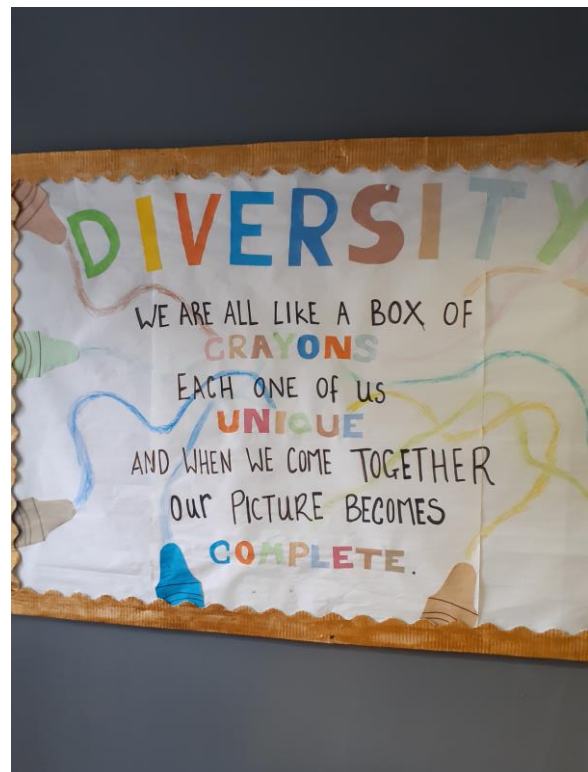 DIVERSITY
WE ARE ALL LIKE A BOX OF
CRAYONS
EACH ONE OF us
UNIQUE
AND WHEN WE COME TOGETHER
OUr PICTURE BECOMES
COMPLETE.